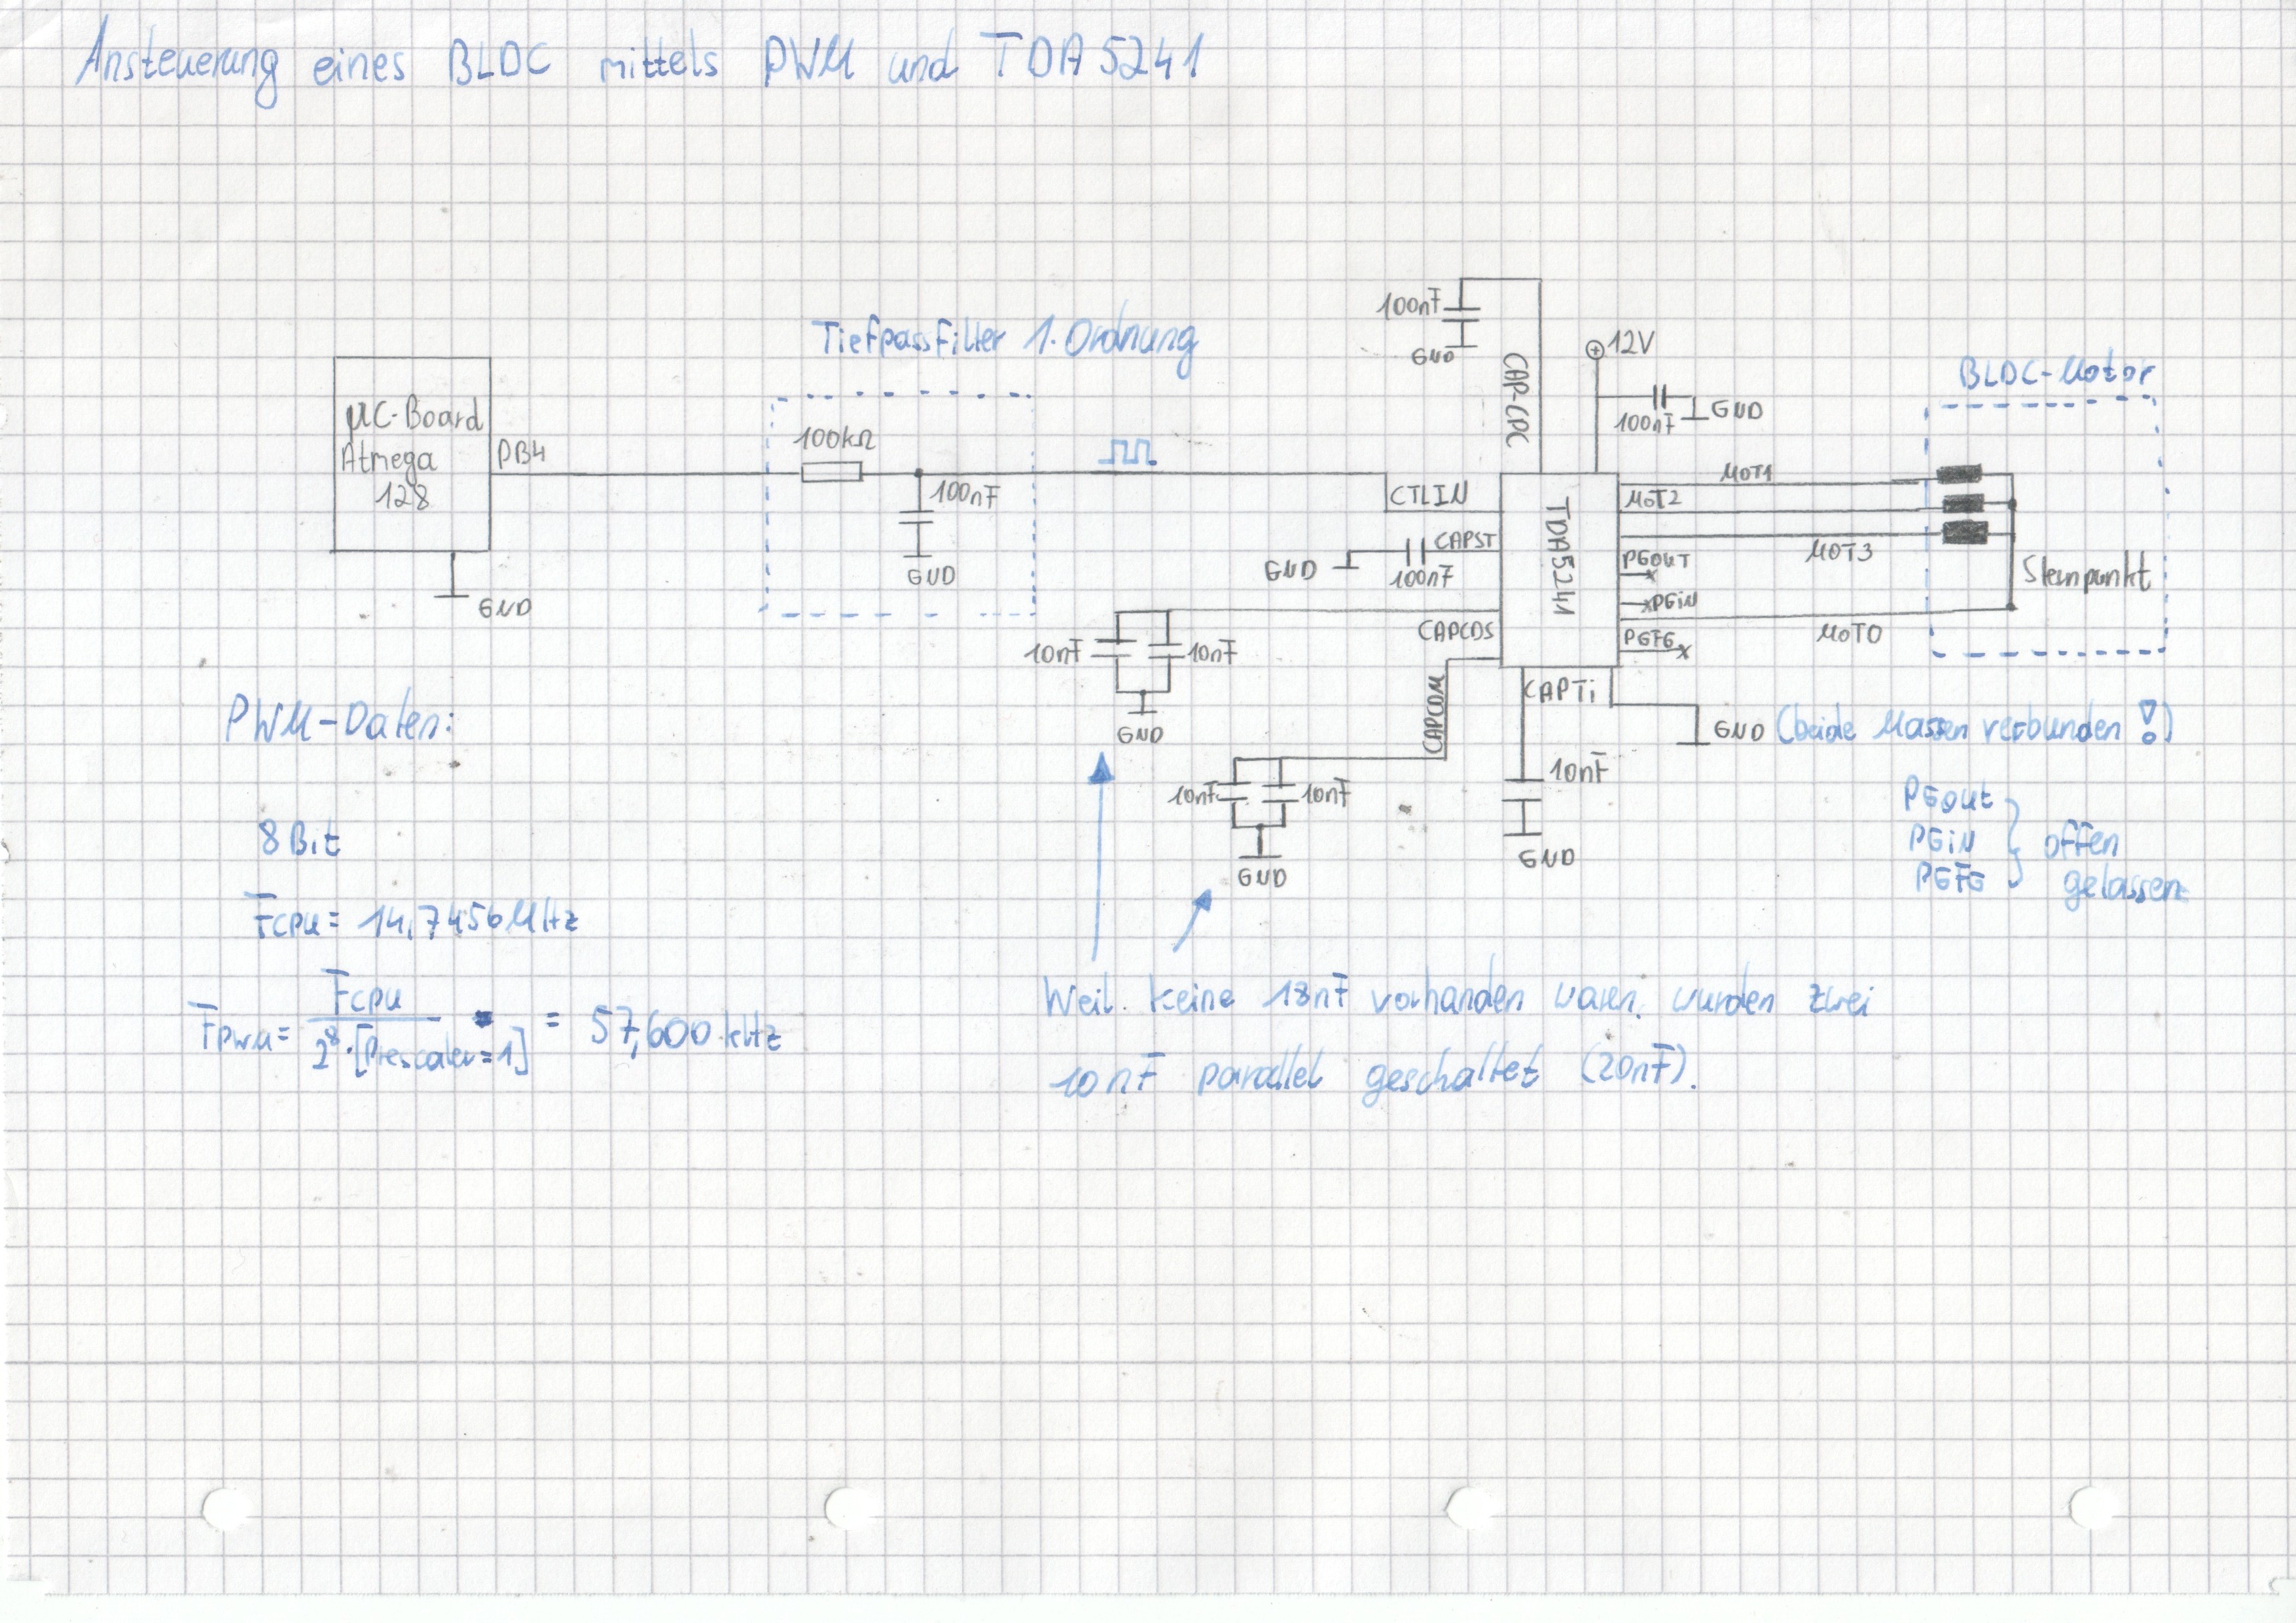 Ansteuerung eines BLDC mittels PWM und TDA5241
Tiefpassfilter 1. Ordnung
100nF
GND
CAP-CPC
12V
100nF
GND
BLDC-Motor
µC-Board
Atmega
128
PB4
GND
100kΩ
100nF
GND
CTLIN
CAPST
GND
100nF
CAPCDS
10nF
10nF
GND
CAPCDM
10nF
10nF
GND
TDA5241
CAPTi
10nF
GND
GND (beide Massen verbunden!)
MOT1
MOT2
MOT3
PGOUT
PGiN
MOT0
PGFG
Sternpunkt
PGout
PGiN
PGFG
offen
gelassen
PWM-Daten:
8 Bit
Fcpu = 14,7456MHz
Fpwm = Fcpu / 2⁸·[Prescaler=1] = 57,600 kHz
Weil keine 18nF vorhanden waren, wurden zwei
10nF parallel geschaltet (20nF).